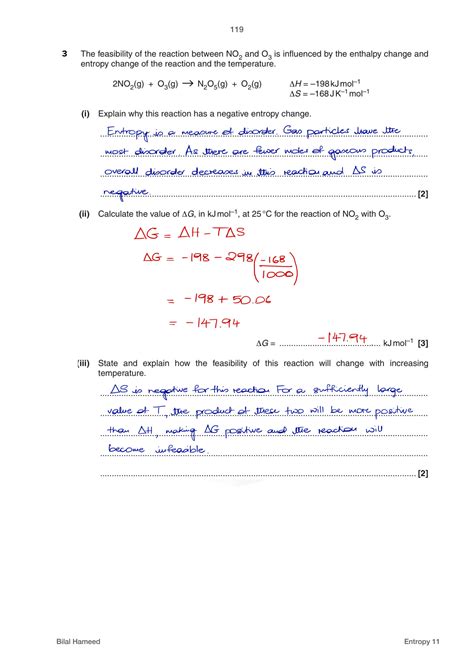 119
3 The feasibility of the reaction between NO₂ and O₃ is influenced by the enthalpy change and
entropy change of the reaction and the temperature.
2NO₂(g) + O₃(g) → N₂O₅(g) + O₂(g) ΔH = –198 kJ mol⁻¹
ΔS = –168 J K⁻¹ mol⁻¹
(i) Explain why this reaction has a negative entropy change.
Entropy is a measure of disorder. Gas particles have the
most disorder. As there are fewer moles of gaseous products,
overall disorder decreases in this reaction and ΔS is
negative. [2]
(ii) Calculate the value of ΔG, in kJ mol⁻¹, at 25 °C for the reaction of NO₂ with O₃.
ΔG = ΔH – TΔS
ΔG = –198 – 298(–168/1000)
= –198 + 50.06
= –147.94
ΔG = –147.94 kJ mol⁻¹ [3]
(iii) State and explain how the feasibility of this reaction will change with increasing
temperature.
ΔS is negative for this reaction. For a sufficiently large
value of T, the product of these two will be more positive
than ΔH, making ΔG positive and the reaction will
become infeasible.
[2]
Bilal Hameed Entropy 11